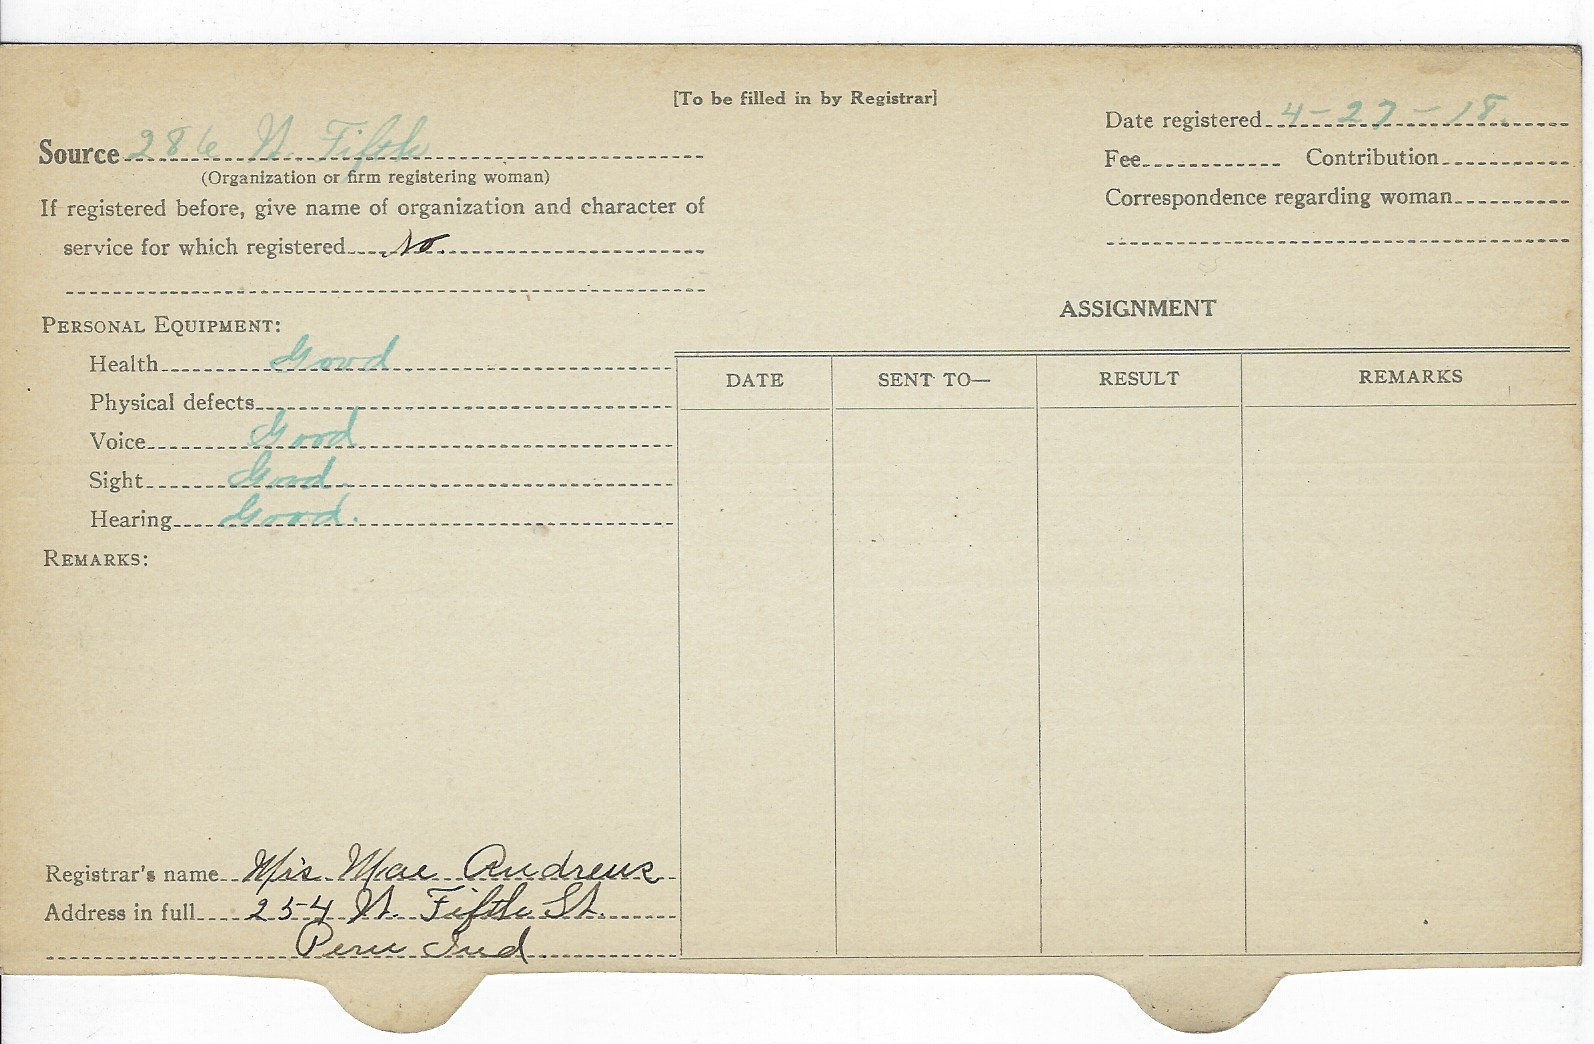 [To be filled in by Registrar]
Date registered 4-27-18.
Source 286 W. Fifth
(Organization or firm registering woman)
Fee Contribution
If registered before, give name of organization and character of
Correspondence regarding woman
service for which registered No.
PERSONAL EQUIPMENT:
ASSIGNMENT
Health Good
Physical defects
Voice Good
Sight Good.
Hearing Good.
DATE SENT TO— RESULT REMARKS
REMARKS:
Registrar's name Mrs Mae Andrews
Address in full 254 W. Fifth St.
Peru Ind